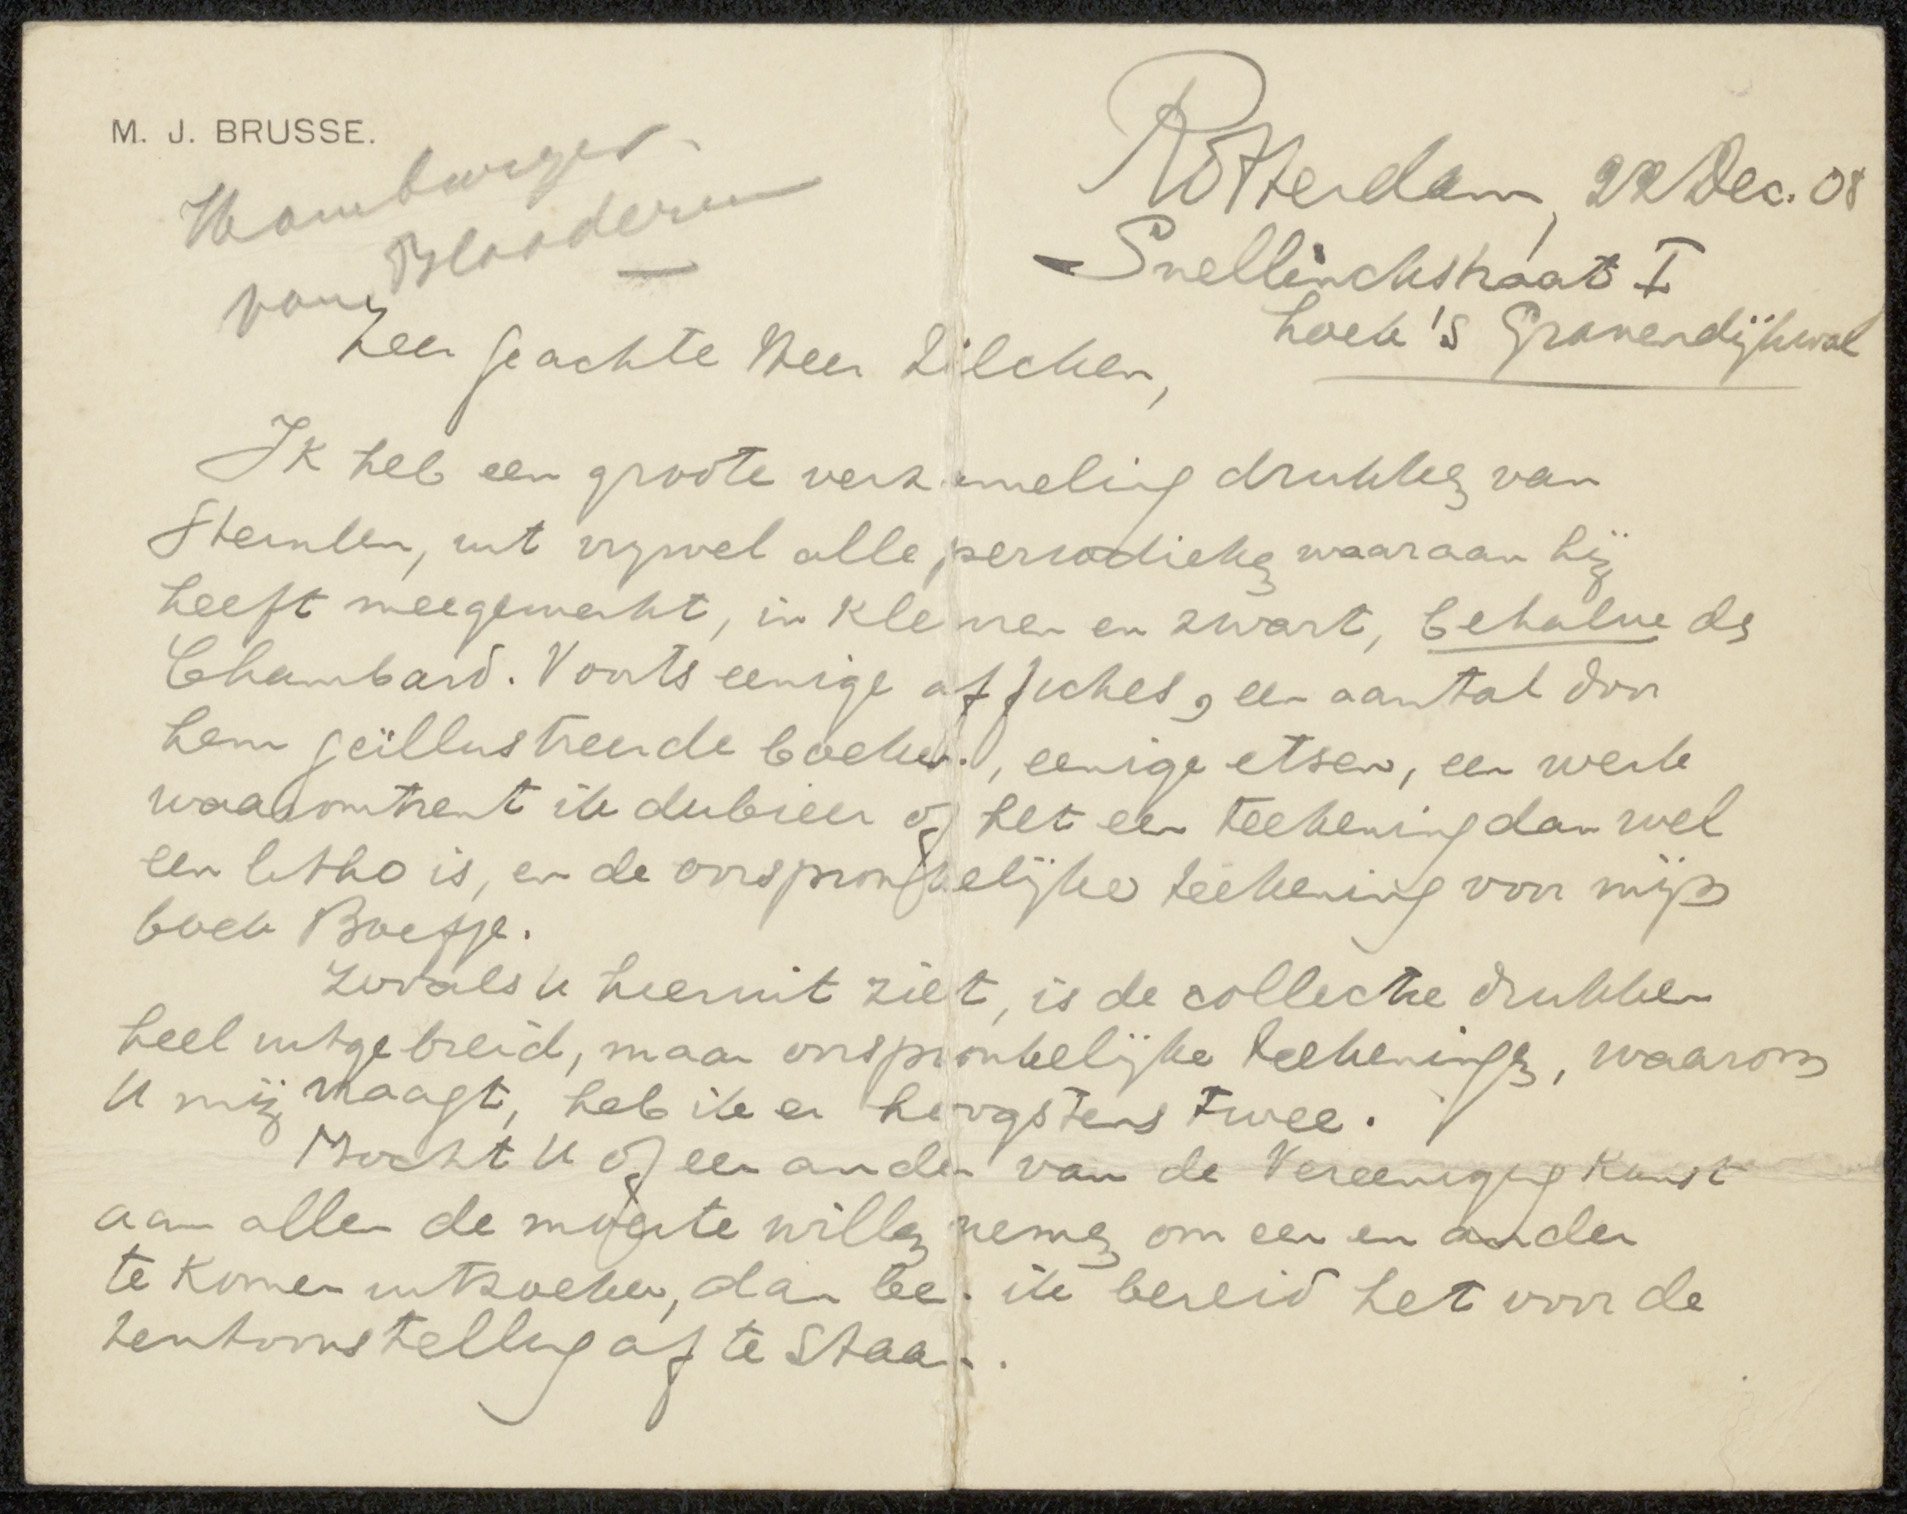 M. J. BRUSSE.
Homburger
van Blaaderen
Rotterdam, 22 Dec. 08
Snellinckstraat I
hoek 's Gravendijkwal
Zeer geachte Heer Zilcken,
Ik heb een groote verzameling drukken van
Steinlen, uit vrywel alle periodieken waaraan hij
heeft meegewerkt, in kleuren en zwart, behalve de
Chambard. Voorts eenige affiches, een aantal door
hem geïllustreerde boeken, eenige etsen, een werk
waaromtrent ik dubieer of het een teekening dan wel
een litho is, en de oorspronkelijke teekening voor mijn
boek Boefje.
Zooals U hieruit ziet, is de collectie drukken
heel uitgebreid, maar oorspronkelijke teekeningen, waarom
U mij vraagt, heb ik er hoogstens twee.
Mocht U of een ander van de Vereeniging Kunst
aan allen de moeite willen nemen om een en ander
te komen uitzoeken, dan ben ik bereid het voor de
tentoonstelling af te staan.